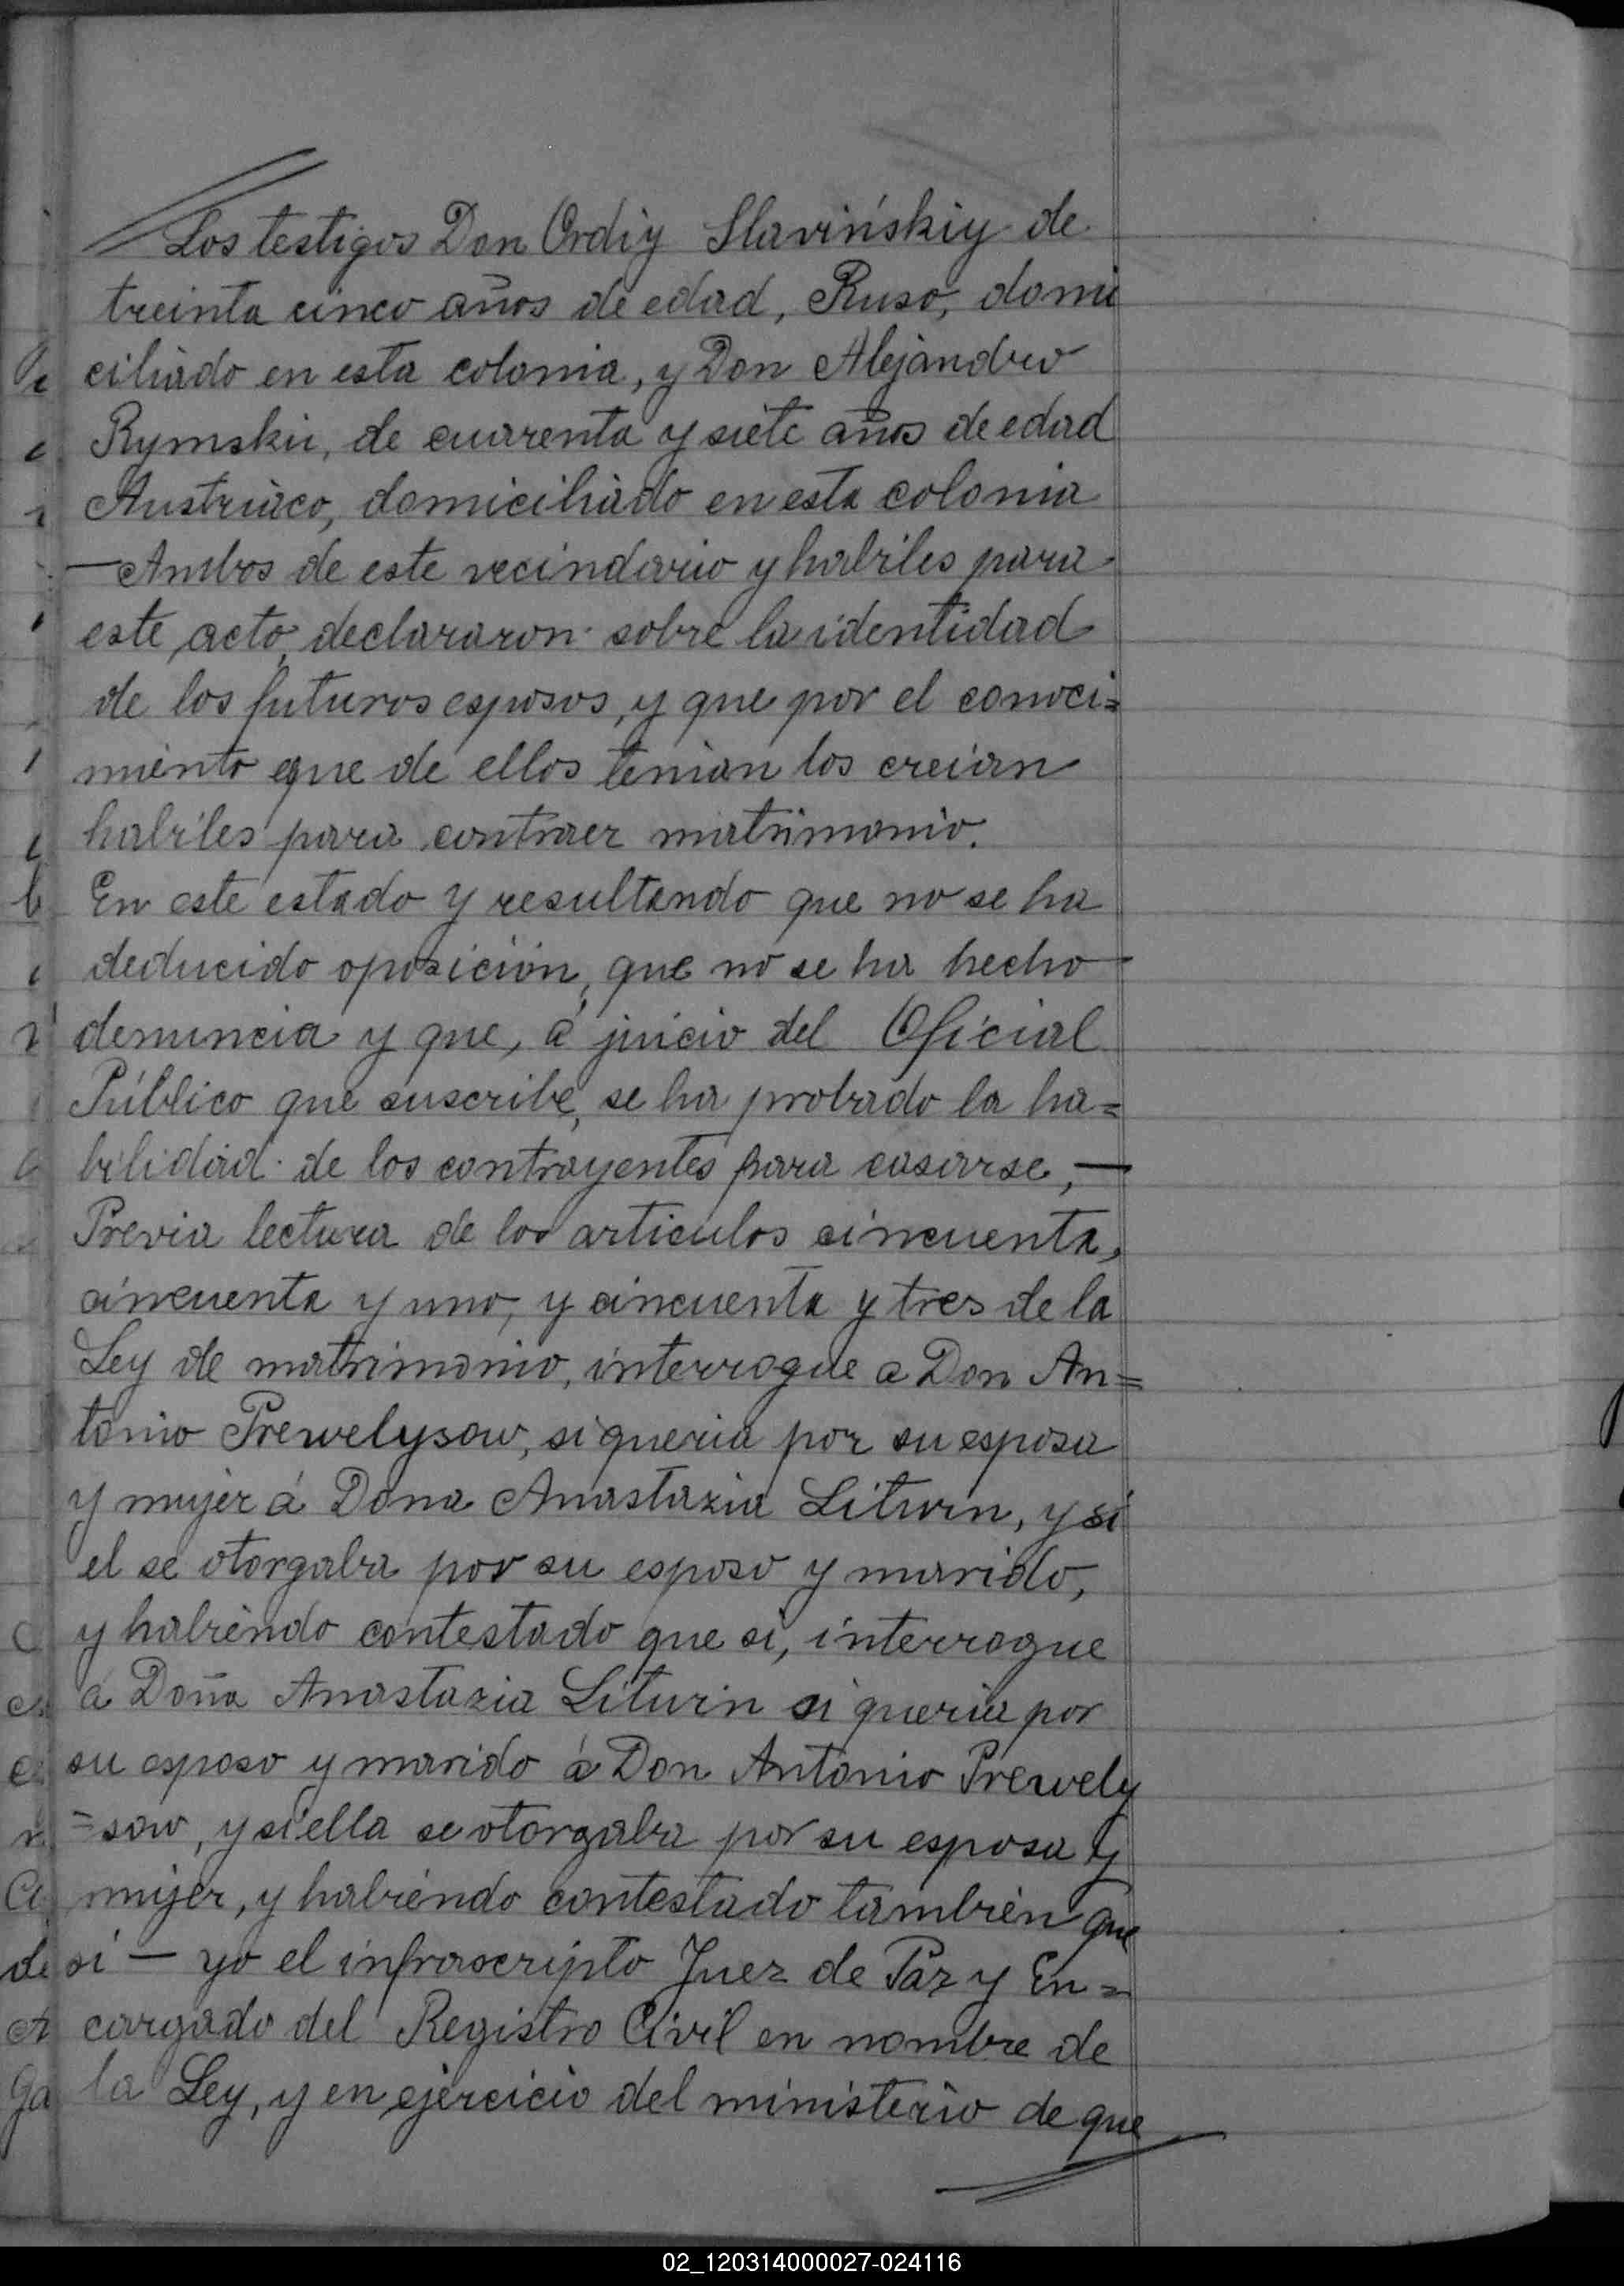 Los testigos Don Ordiy Slavińskiy de
treinta cinco años de edad, Ruso, domi
ciliado en esta colonia, y Don Alejandro
Rymskii, de cuarenta y siete años de edad
Austriaco, domiciliado en esta colonia
—Ambos de este vecindario y habiles para
este acto, declararon sobre la identidad
de los futuros esposos, y que por el conoci=
miento que de ellos tenian los creian
habiles para contraer matrimonio.
En este estado y resultando que no se ha
deducido oposición, que no se ha hecho
denuncia y que, á juicio del Oficial
Público que suscribe, se ha probado la ha=
bilidad de los contrayentes para casarse,—
Previa lectura de los articulos cincuenta,
cincuenta y uno, y cincuenta y tres de la
Ley de matrimonio, interrogue a Don An=
tonio Prewelysow, si queria por su esposa
y mujer á Dona Anastazia Litwin, y si
el se otorgaba por su esposo y marido,
y habiendo contestado que si, interrogue
á Doña Anastazia Litwin si queria por
su esposo y marido á Don Antonio Prewely
=sow, y si ella se otorgaba por su esposa y
mujer, y habiendo contestado también que
si — yo el infrascripto Juez de Paz y En=
cargado del Registro Civil en nombre de
la Ley, y en ejercicio del ministerio de que
02_120314000027-024116